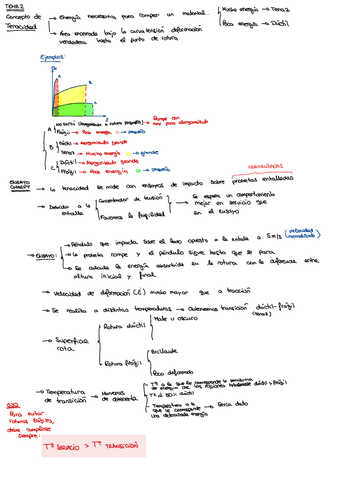 TEMA 2
Concepto de Tenacidad
→ Energía necesaria para romper un material.
Mucha energía → Tenaz
Poca energía → Dúctil
→ Área encerrada bajo la curva tensión deformación
verdadera hasta el punto de rotura
Ejemplos:
A
B
C
Frágil → Poca energía → pequeño
B Dúctil → alargamiento grande
Tenaz → Mucha energía → grande
C Dúctil → Alargamiento grande
Frágil → Poca energía → pequeño
Rompe con
NORMALIZADAS
ENSAYO CHARPY
→ La tenacidad se mide con ensayos de impacto sobre probetas entalladas
→ Debido a la entalla
Concentrador de tensión
Favorece la fragilidad
Se espera un comportamiento
mejor en servicio que
en el ensayo
→ ENSAYO:
→ Péndulo que impacta sobre el lado opuesto a la entalla a 5 m/s (velocidad normalizada)
→ La probeta rompe y el péndulo sigue hasta que se para.
→ Se calcula la energía absorbida en la rotura con la diferencia entre
altura inicial y final
→ Velocidad de deformación (ε̇) mucho mayor que a tracción
→ Se realiza a distintas temperaturas → Obtenemos transición dúctil-frágil
(tenaz)
→ Superficie rota
Rotura dúctil
Mate u oscuro
Rotura frágil
Brillante
Poco deformada
→ Temperatura de transición
→ Maneras de obtenerla
Tª a la que le corresponde la
de energía de las regiones totalmente dúctil y frágil
Tª al 50% dúctil
Temperatura a la
que le corresponde
una determinada energía
→ Sería dato
OJO
Para evitar
roturas frágiles,
debe cumplirse
siempre:
Tª SERVICIO > Tª TRANSICIÓN